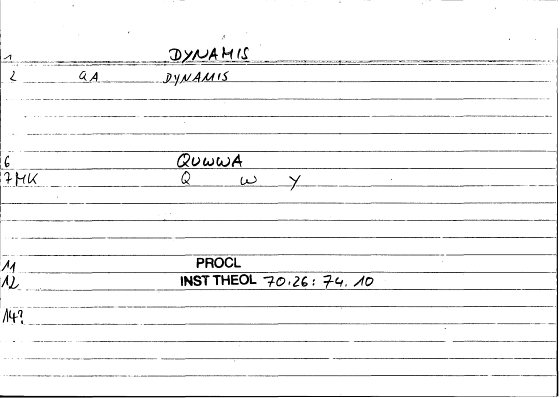 1 DYNAMIS
2 GA DYNAMIS
6 QUWWA
7 MK Q W Y
11 PROCL
12 INST THEOL 70.26: 74.10
14?